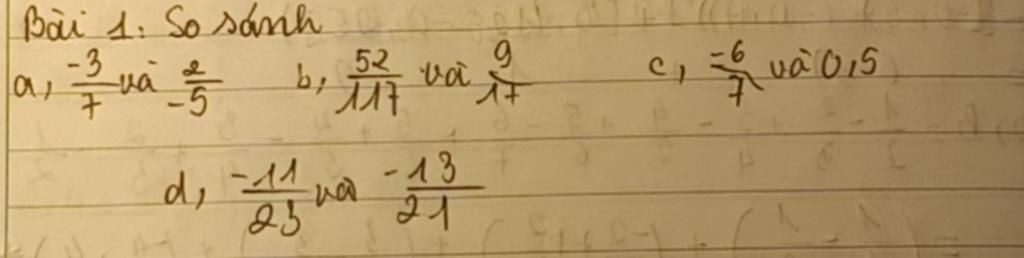 Bài 1: So sánh
a, \frac{-3}{7} và \frac{2}{-5} b, \frac{52}{117} và \frac{9}{17} c, \frac{-6}{7} và 0,5
d, \frac{-11}{23} và \frac{-13}{21}